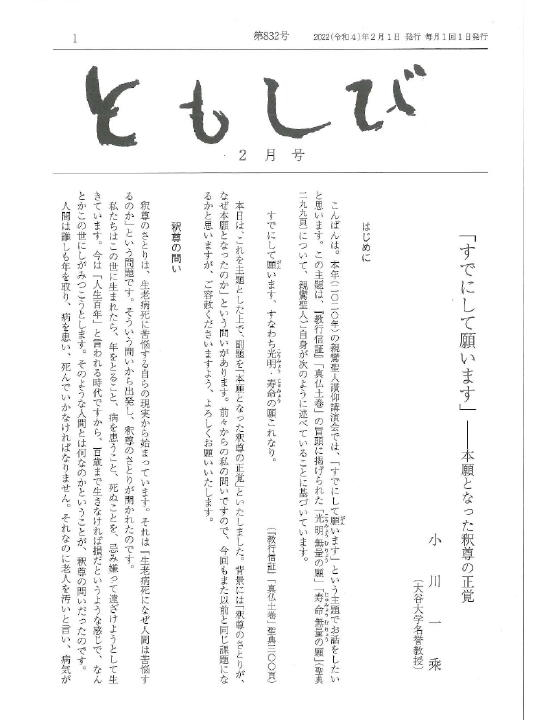 1
第832号
2022(令和4)年2月1日 発行 毎月1回1日発行
ともしび
2月号
「すでにして願います」――本願となった釈尊の正覚
小川一乘
(大谷大学名誉教授)
はじめに
こんばんは。本年(二〇二〇年)の親鸞聖人讃仰講演会では、「すでにして願います」という主題でお話をしたい
と思います。この主題は、『教行信証』「真仏土巻」の冒頭に掲げられた「光明無量の願」「寿命無量の願」(聖典
二九九頁)について、親鸞聖人ご自身が次のように述べていることに基づいています。
すでにして願います、すなわち光明・寿命の願これなり。
(『教行信証』「真仏土巻」聖典三〇〇頁)
本日は、これを主題とした上で、副題を「本願となった釈尊の正覚」といたしました。背景には「釈尊のさとりが、
なぜ本願となったのか」という問いがあります。前々からの私の問いですので、今回もまた以前と同じ課題にな
るかと思いますが、ご容赦くださいますよう、よろしくお願いいたします。
釈尊の問い
釈尊のさとりは、生老病死に苦悩する自らの現実から始まっています。それは「生老病死になぜ人間は苦悩す
るのか」という問題です。そういう問いから出発し、釈尊のさとりが開かれたのです。
私たちはこの世に生まれたら、年をとること、病を患うこと、死ぬことを、忌み嫌って遠ざけようとして生
きています。今は「人生百年」と言われる時代ですから、百歳まで生きなければ損だというような感じで、なん
とかこの世にしがみつこうとします。そのような人間とは何なのかということが、釈尊の問いだったのです。
人間は誰しも年を取り、病を患い、死んでいかなければなりません。それなのに老人を汚いと言い、病気が